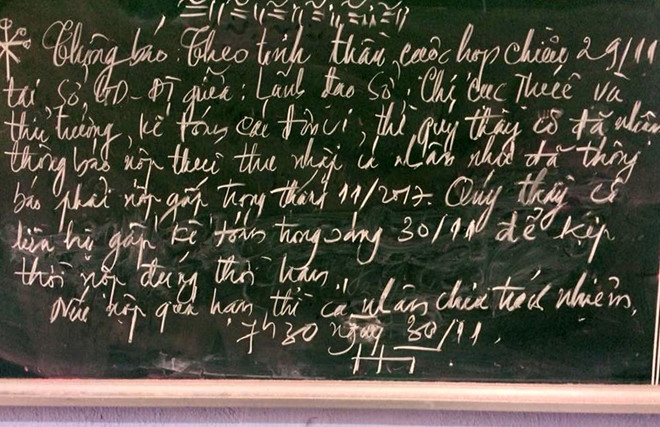 Thông báo: Theo tinh thần cuộc họp chiều 29/11
tại Sở GD-ĐT giữa: Lãnh đạo Sở, Chi cục Thuế và
thủ trưởng, kế toán các đơn vị, thì quý thầy cô đã nhận
thông báo nộp thuế thu nhập cá nhân như đã thông
báo phải nộp gấp trong tháng 11/2017. Quý thầy cô
liên hệ gấp kế toán trong sáng 30/11 để kịp
thời nộp đúng thời hạn.
Nếu nộp quá hạn thì cá nhân chịu trách nhiệm.
7h30 ngày 30/11.